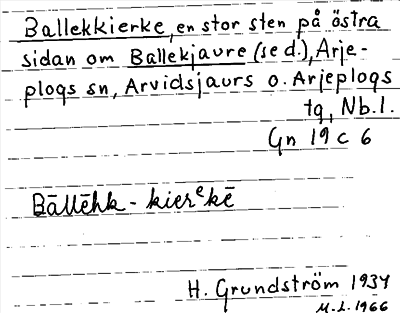 Ballekkierke, en stor sten på östra
sidan om Ballekjaure (se d.), Arje-
plogs sn, Arvidsjaurs o. Arjeplogs
tg, Nb.l.
Gn 19 c 6
Bāllēhk - kierᵉkē
H. Grundström 1934
M.L. 1966